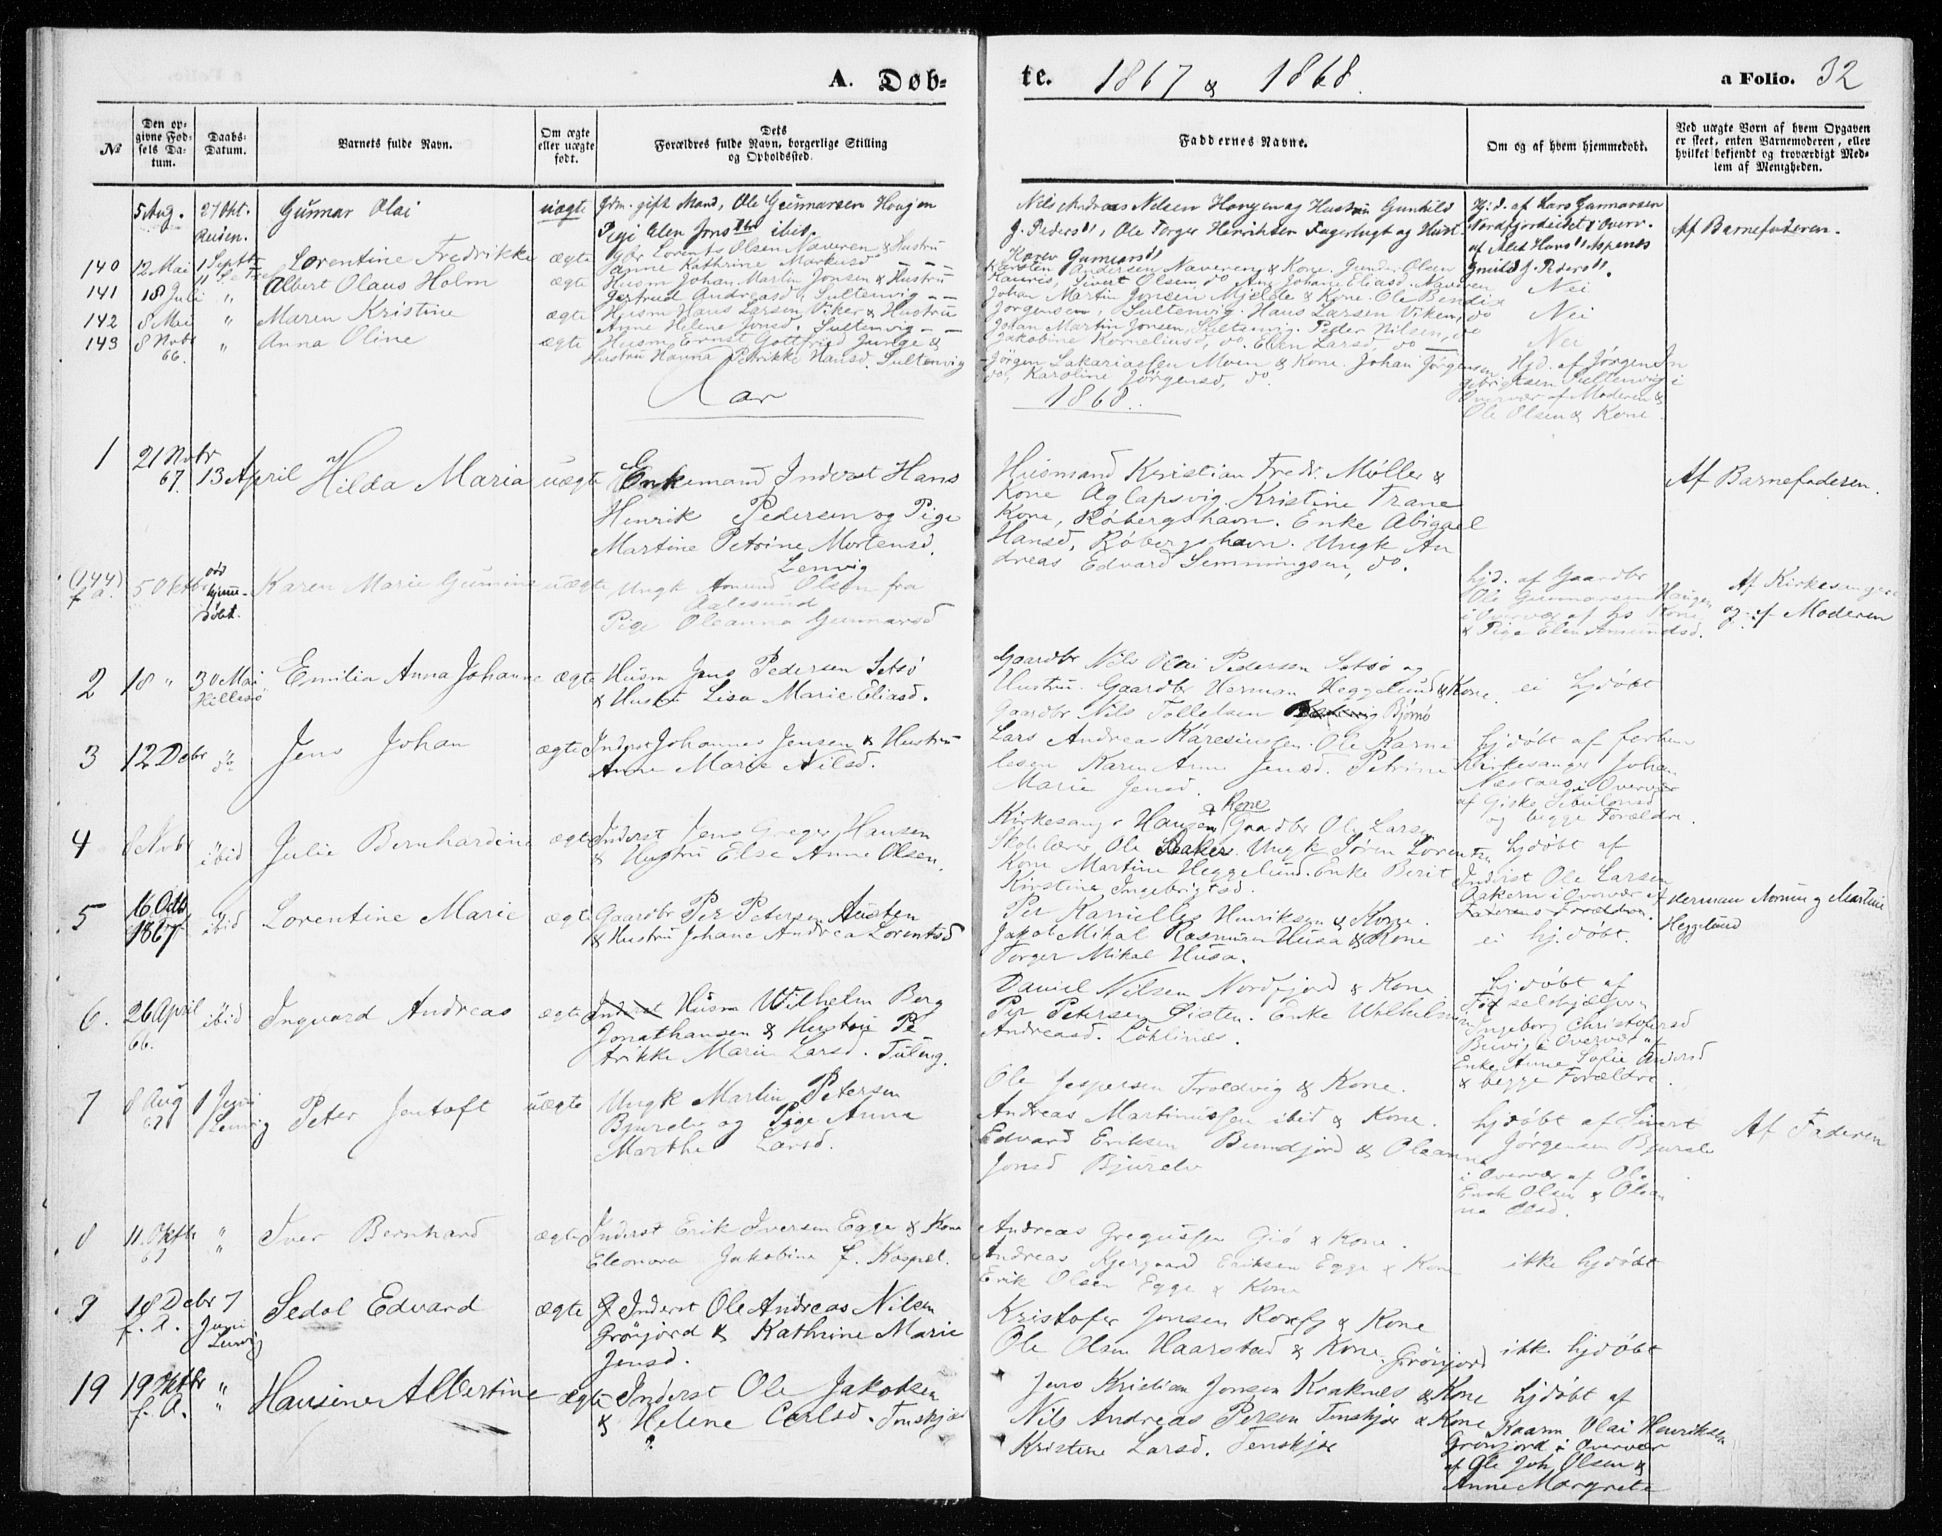 A. Døb-
te. 1867 & 1868.
a Folio. 32
№
Den op-
givne Fød-
sels Da-
tum.
Daabs-
Datum.
Barnets fulde Navn.
Om ægte
eller uægte
født.
Dets
Forældres fulde Navn, borgerlige Stilling
og Opholdssted.
Faddernes Navne.
Om og af hvem hjemmedøbt.
Ved uægte Born af hvem Opgaven
er skeet, enten Barnemoderen, eller
hvilket bekjendt og troværdigt Med-
lem af Menigheden.
5 Aug. 27 Okt. Gunnar Olai uægte gift Mand, Ole Gunnarsen Haugen
Pige Elen ibid.
Nils Andreas Nilsen Haugen og Hustru Gunhild
J. Peders", Ole Torger Henriksen Fagerlugt og Hust.
Karen Gunnars"
Hjd. af Lars Gunnarsen
Nordfjordeidet i Overv.
af Hans" Aspenes
Af Barnefaderen.
140 12 Mai 1 Septb Lorentine Fredrikke ægte Lorents Olsen Naveren & Hustru
Anne Kathrine Markusd
Karsten Andersen Naveren & Kone. Gunder Olsen
Sivert Olsen, do Ane Johane Eliasd. Naveren
Nei
141 18 Juli " Albert Olaus Holm ægte Husm Johan Martin Jonsen & Hustru
Gertrud Andreasd, Sultenvig
Johan Martin Jonsen Mjelde & Kone. Ole Bendix
Jørgensen, Sultenvig. Hans Larsen Viken, do
Nei
142 8 Mai " Maren Kristine ægte Husm Hans Larsen Viker & Hustru
Anne Helene Jonsd. Sultenvig
Johan Martin Jonsen, Sultenvig. Peder Nilsen, do
Jakobine Korneliusd, do. Elen Larsd, do
Nei
143 8 Novb 66. " Anna Oline ægte Husm Ernst Gottfried Junge &
Hustru Hanna Petrikke Hansd. Sultenvig
Jørgen Sakariassen Moen & Kone. Johan Jørgensen
do, Karoline Jørgensd, do.
Hjd. af Jørgen In
gebrigtsen Sultenvig i
Overvær af Moderen &
Ole Olsen & Kone
Aar 1868.
1 21 Nobr 67. 13 April Hilda Maria uægte Enkemand Inderst Hans
Henrik Pedersen og Pige
Martine Petrine Mortensd.
Lenvig
Husmand Kristian Fredr. Møller &
Kone Aglapsvig. Kristine Trane
Kone, Røbergshavn. Enke Abigael
Hansd, Røbergshavn. Ungk An
dreas Edvard Simmingsen, do.
Af Barnefaderen.
(144) f. a. 5 Oktbr Hjemme-
døbt. Karen Marie Gunnine uægte Ungk Amund Olsen fra
Aalesund
Pige Oleanna Gunnarsd
hjd. af Gaardbr
Ole Gunnarsen Haugen
i Overvær af hs Kone
& Pige Elen Amundsd.
Af Kirkesanger
og af Moderen
2 18 " 30 Mai
Hillesø Emilia Anna Johanne ægte Husm Jens Pedersen Setsø
& Hustr Lisa Marie Eliasd.
Gaardbr Nils Olai Pedersen Setsø og
Hustru. Gaardbr Herman Heggelund & Kone.
Gaardbr Nils Tollelsen Bjørnø
ei hjdøbt
3 12 Debr do Jens Johan ægte Inderst Johannes Jensen & Hustru
Anne Marie Nilsd.
Lars Andreas Karesiussen. Ole Karne
lesen Karen Anne Jensd. Petrine
Marie Jensd.
hjdøbt af
Kirkesanger Johan
i Overvær
af Giske
og begge Forældre.
4 8 Novbr ibid Julie Bernhardine ægte Inderst Jens Greger Hansen
& Hustru Else Anne Olsen.
Kirkesang r Haugen & Kone Gaardbr Ole Larsen
Skolelærer Ole Baker. Ungk Søren Lorentzen
Kone Martine Heggelund. Enke Berit
Kirstine Ingebrigtsd.
hjdøbt af
Inderst Ole Larsen
Aakern i Overvær af
Faderens Forældre.
Herman Aorning Martine
Heggelund
5 16 Octb
1867 ibid Lorentine Marie ægte Gaardbr Per Petersen Austen
& Hustru Johane Andrea Lorentsd
Per Kanielles Henriksen & Kone.
Jakob Mikal Rasmusen Husa & Kone
Torger Mikal Husa.
ei hjdøbt.
6. 26 April
66. ibid Ingvard Andreas ægte Inderst Husm Wilhelm Berg
Jonathansen & Hustru Pe
trikke Marie Larsd. Tuleng.
Daniel Nilsen Nordfjord & Kone
Per Petersen Østen. Enke Wilhelmine
Andreasd. Løhlines.
hjdøbt af
Ingeborg Christofersd
i Overvær af
Enke Anne Sofie Andersd
& begge Forældre.
7 8 Aug
67 1 Juni
Lenvig Peter Jentoft uægte Ungk Martin Petersen
Bjurelv og Pige Anna
Marthe Larsd.
Ole Jespersen Troldvig & Kone.
Andreas Martinussen ibid & Kone.
Edvard Eriksen Bundfjord & Oleanna
Jonsd Bjurelv
hjdøbt af Sivert
Jørgensen Bjurelv
i Overvær af Ole
Enok Olsen & Olean
na Olsd.
Af Faderen
8 11. Oktb
67 " Iver Bernhard ægte Inderst Erik Iversen Egge & Kone
Eleonora Jakobine f. Kaspel.
Andreas Gregussen Giø & Kone.
Andreas Kjergaard Eriksen Egge & Kone
Erik Olsen Egge & Kone
ikke hjdøbt
9 18 Debr
f. A. 7
Juni
Lenvig Sedol Edvard ægte Inderst Ole Andreas Nilsen
Grønjord & Kathrine Marie
Jensd.
Kristofer Jensen & Kone
Ole Olsen Haarstad & Kone. Grønjord
ikke hjdøbt
19 19 Oktbr
f. A. " Hansine Albertine ægte Inderst Ole Jakobsen
& Helene Carlsd. Tenskjær
?
Jens Kristian Jonsen Kraknes & Kone
Nils Andreas Persen Tenskjær & Kone
Kristine Larsd. Tenskjær
hjdøbt af
Kaarn Olai Henriksen
Grønjord i Overvær
af Ole Joh. Olsen &
Anne Margrete